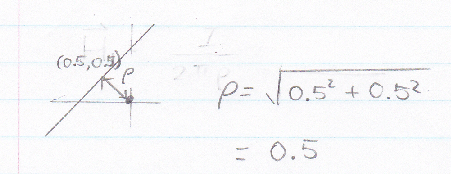 (0.5,0.5)
ρ
ρ = √(0.5² + 0.5²)
= 0.5